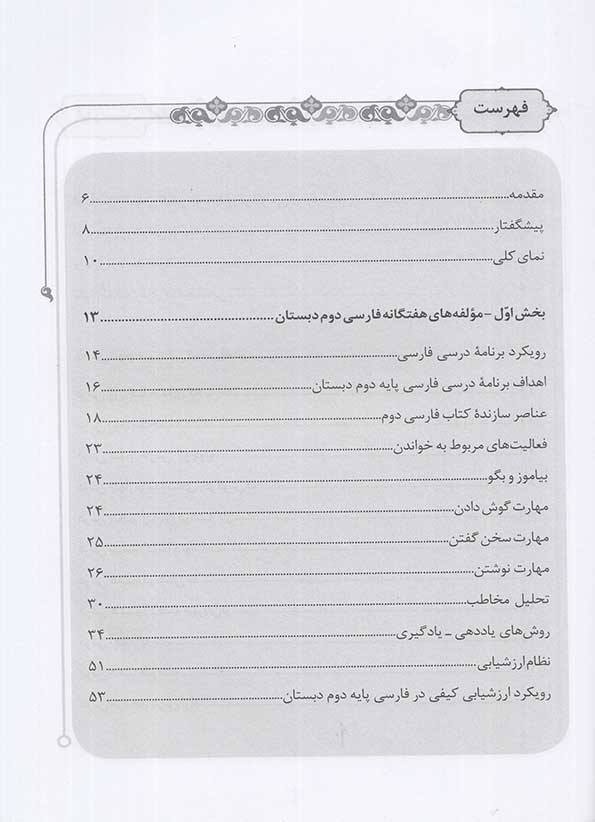 فهرست
مقدمه............۶
پیشگفتار............۸
نمای کلی............۱۰
بخش اوّل – مؤلفه‌های هفتگانه فارسی دوم دبستان............۱۳
رویکرد برنامهٔ درسی فارسی............۱۴
اهداف برنامهٔ درسی فارسی پایه دوم دبستان............۱۶
عناصر سازندهٔ کتاب فارسی دوم............۱۸
فعالیت‌های مربوط به خواندن............۲۳
بیاموز و بگو............۲۴
مهارت گوش دادن............۲۴
مهارت سخن گفتن............۲۵
مهارت نوشتن............۲۶
تحلیل مخاطب............۳۰
روش‌های یاددهی ـ یادگیری............۳۴
نظام ارزشیابی............۵۱
رویکرد ارزشیابی کیفی در فارسی پایه دوم دبستان............۵۳